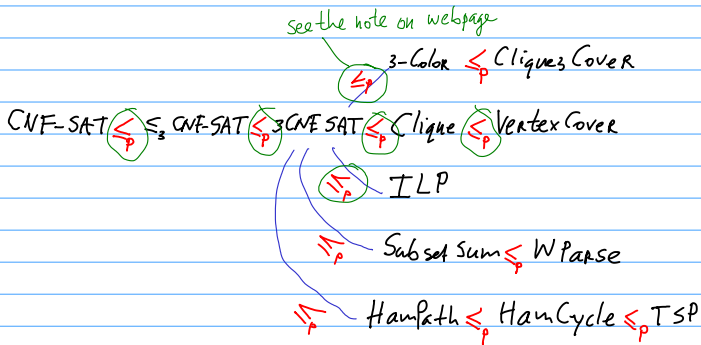 see the note on webpage
≤p 3-Color ≤p Clique3 Cover
CNF-SAT ≤p ≤3 CNF-SAT ≤p 3CNF SAT ≤p Clique ≤p Vertex Cover
≤p ILP
≤p Subset Sum ≤p W Parse
≤p HamPath ≤p HamCycle ≤p TSP